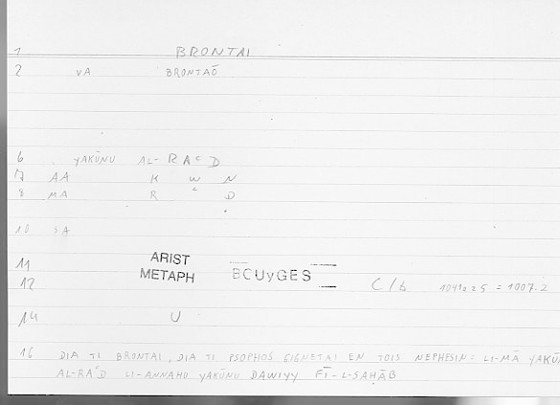 1 BRONTAI
2 VA BRONTAŌ
6 YAKŪNU AL-RAʿD
7 AA K W N
8 MA R ʿ D
10 SA
11 ARIST BOUyGES
12 METAPH C/b = 1007.2
14 U
16 DIA TI BRONTAI, DIA TI PSOPHOS GIGNETAI EN TOIS NEPHESIN: LI-MĀ YAKŪN
AL-RAʿD LI-ANNAHU YAKŪNU DAWIYY FĪ-L-SAHĀB